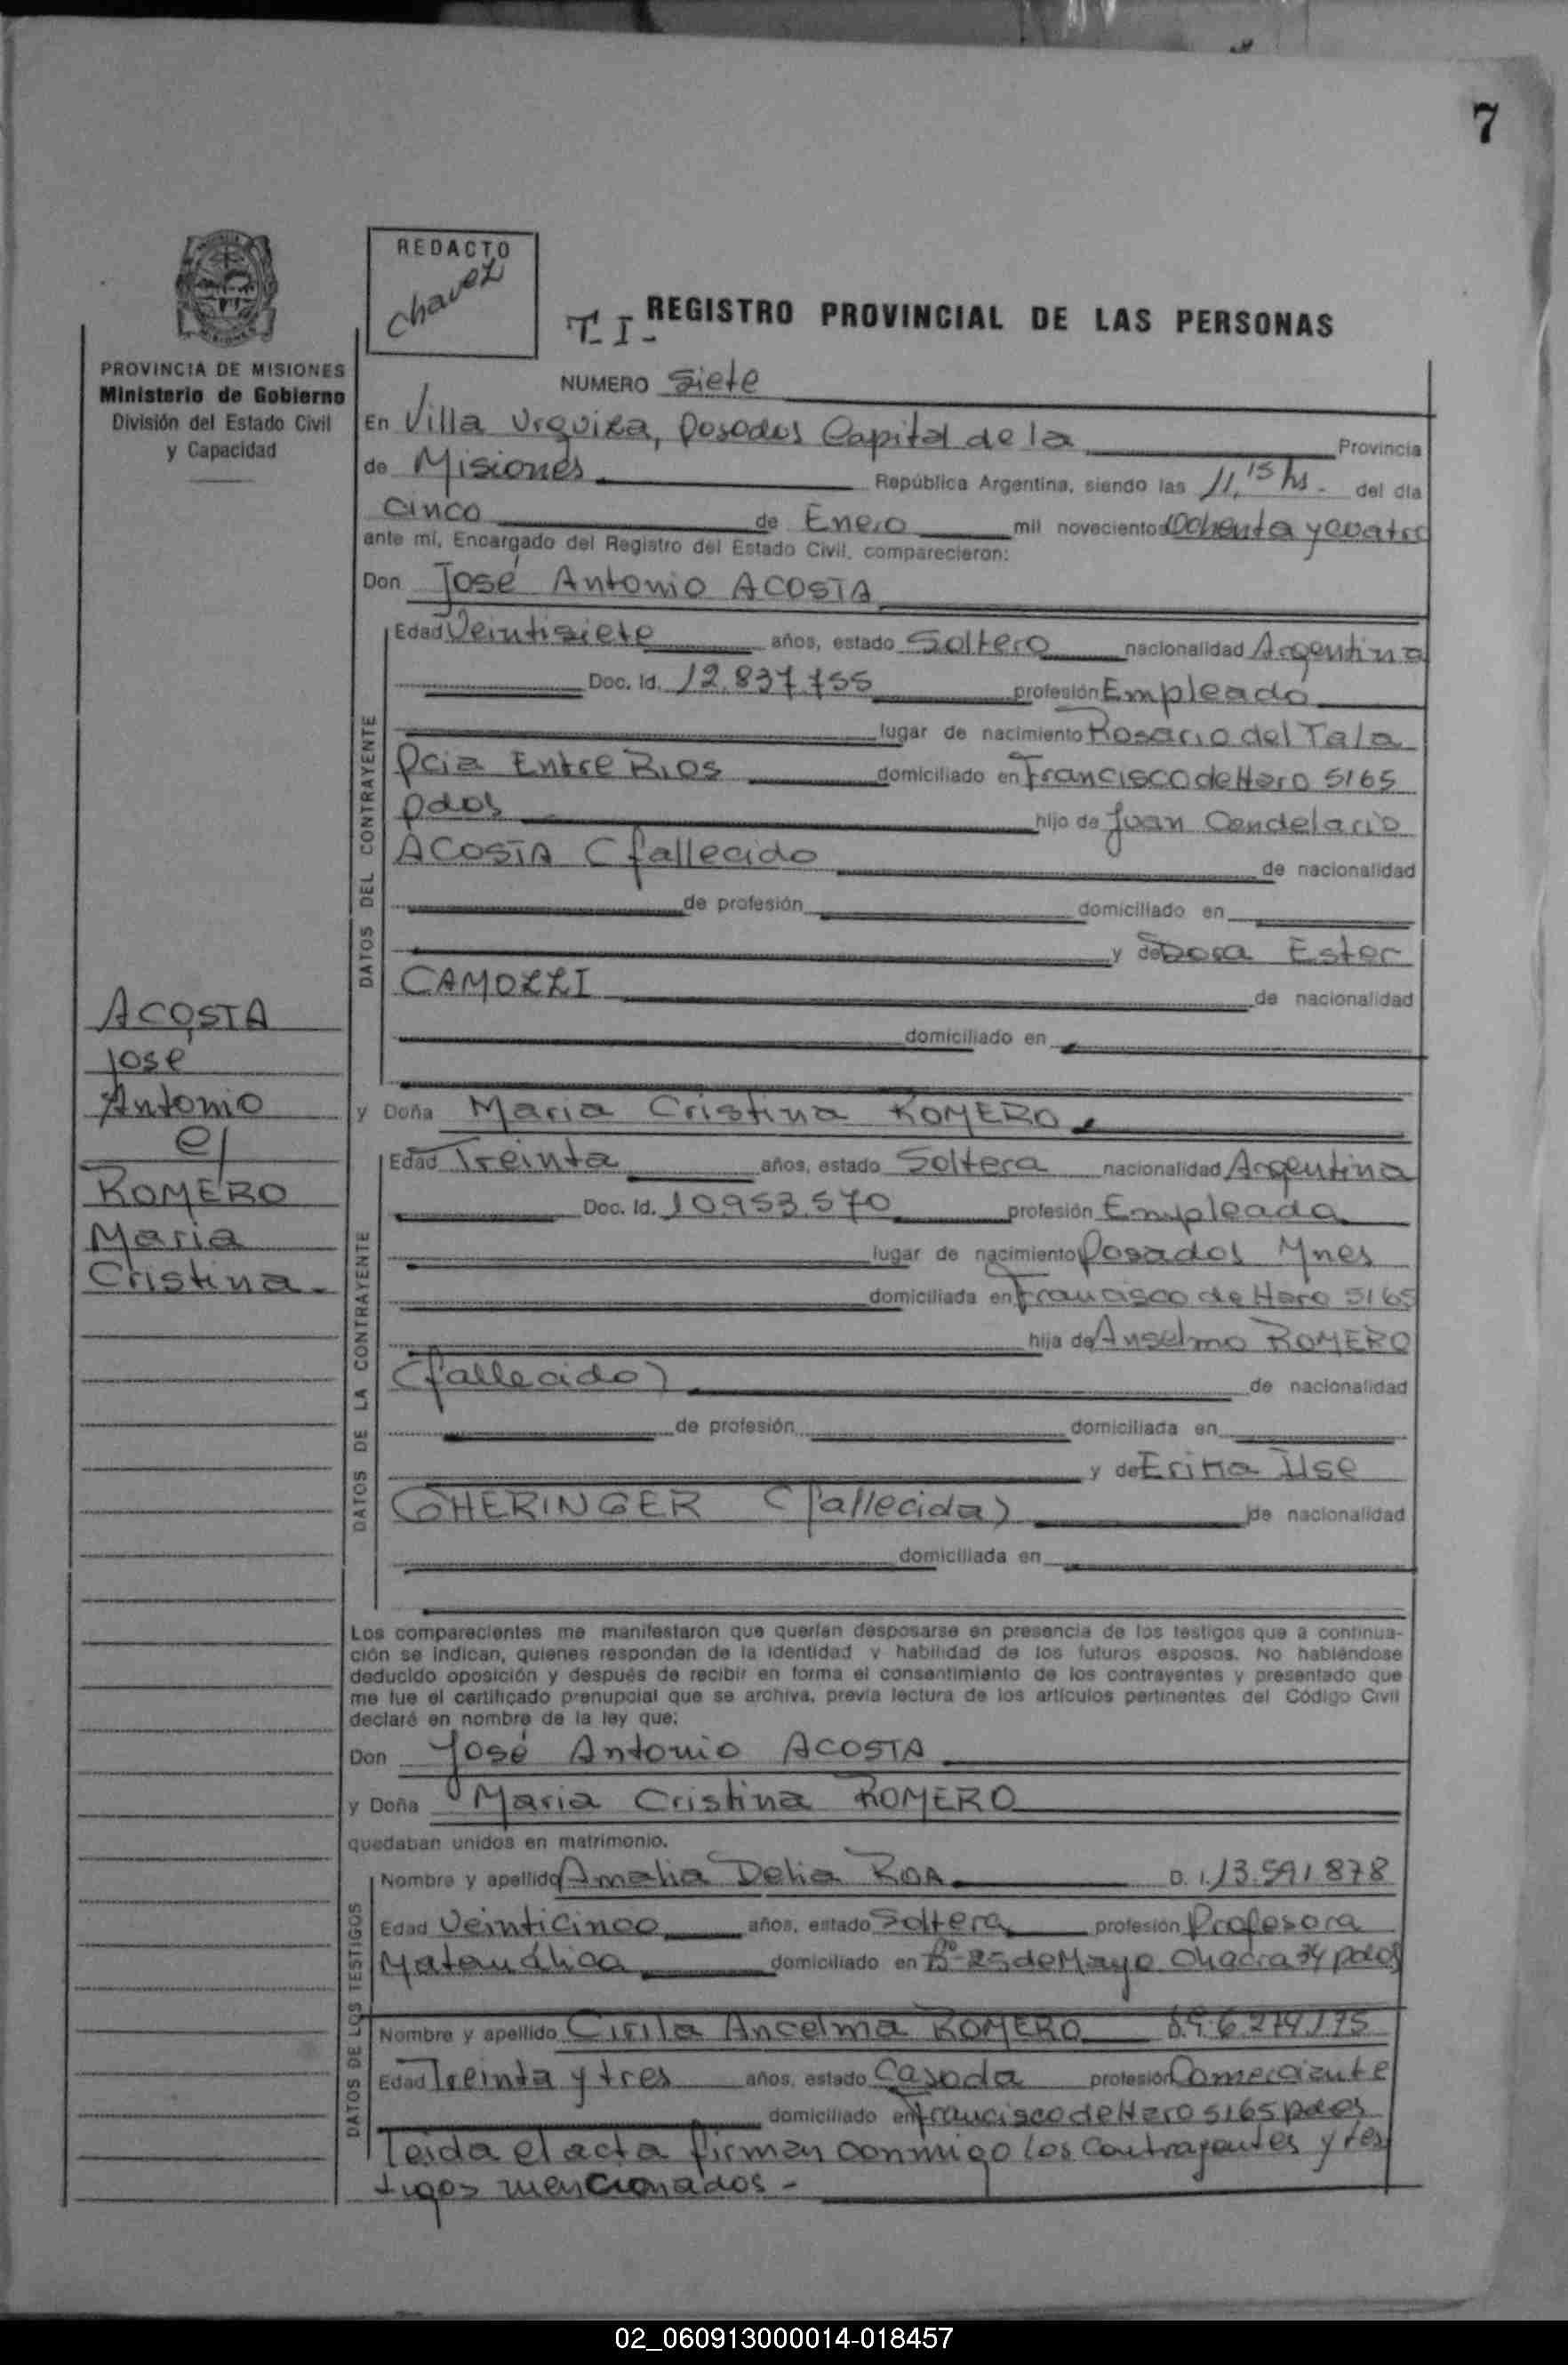 7
REDACTO
Chavez
T. I. -
REGISTRO PROVINCIAL DE LAS PERSONAS
PROVINCIA DE MISIONES
Ministerio de Gobierno
División del Estado Civil
y Capacidad
NUMERO Siete
En Villa Urquiza, Posadas Capital de la Provincia
de Misiones República Argentina, siendo las 11,15 hs. del día
cinco de Enero mil novecientos Ochenta y cuatro
ante mí, Encargado del Registro del Estado Civil, comparecieron:
Don José Antonio ACOSTA
DATOS DEL CONTRAYENTE
Edad Veintisiete años, estado Soltero nacionalidad Argentina
Doc. Id. 12.837.755 profesión Empleado
lugar de nacimiento Rosario del Tala
Pcia Entre Rios domiciliado en Francisco de Haro 5165
pdas hijo de Juan Candelario
ACOSTA (fallecido de nacionalidad
de profesión domiciliado en
y de Dora Ester
CAMOZZI de nacionalidad
domiciliado en
ACOSTA
José
Antonio
c/
ROMERO
Maria
Cristina -
y Doña Maria Cristina ROMERO
DATOS DE LA CONTRAYENTE
Edad Treinta años, estado Soltera nacionalidad Argentina
Doc. Id. 10.953.570 profesión Empleada
lugar de nacimiento Posadas Mnes
domiciliada en Francisco de Haro 5165
hija de Anselmo ROMERO
(fallecido) de nacionalidad
de profesión domiciliada en
y de Erika Ilse
GHERINGER (fallecida) de nacionalidad
domiciliada en
Los comparecientes me manifestaron que querían desposarse en presencia de los testigos que a continua-
ción se indican, quienes responden de la identidad y habilidad de los futuros esposos. No habiéndose
deducido oposición y después de recibir en forma el consentimiento de los contrayentes y presentado que
me fue el certificado prenupcial que se archiva, previa lectura de los artículos pertinentes del Código Civil
declaré en nombre de la ley que:
Don José Antonio ACOSTA
y Doña Maria Cristina ROMERO
quedaban unidos en matrimonio.
DATOS DE LOS TESTIGOS
Nombre y apellido Amalia Delia ROA D. I. 13.591.878
Edad Veinticinco años, estado Soltera profesión Profesora
Matemática domiciliado en Bº 25 de Mayo Chacra 34 pdas
Nombre y apellido Cirila Ancelma ROMERO 6.274.175
Edad Treinta y tres años, estado Casada profesión Comerciante
domiciliado en Francisco de Haro 5165 pdas
Leida el acta firman conmigo los contrayentes y tes
tigos mencionados -
02_060913000014-018457